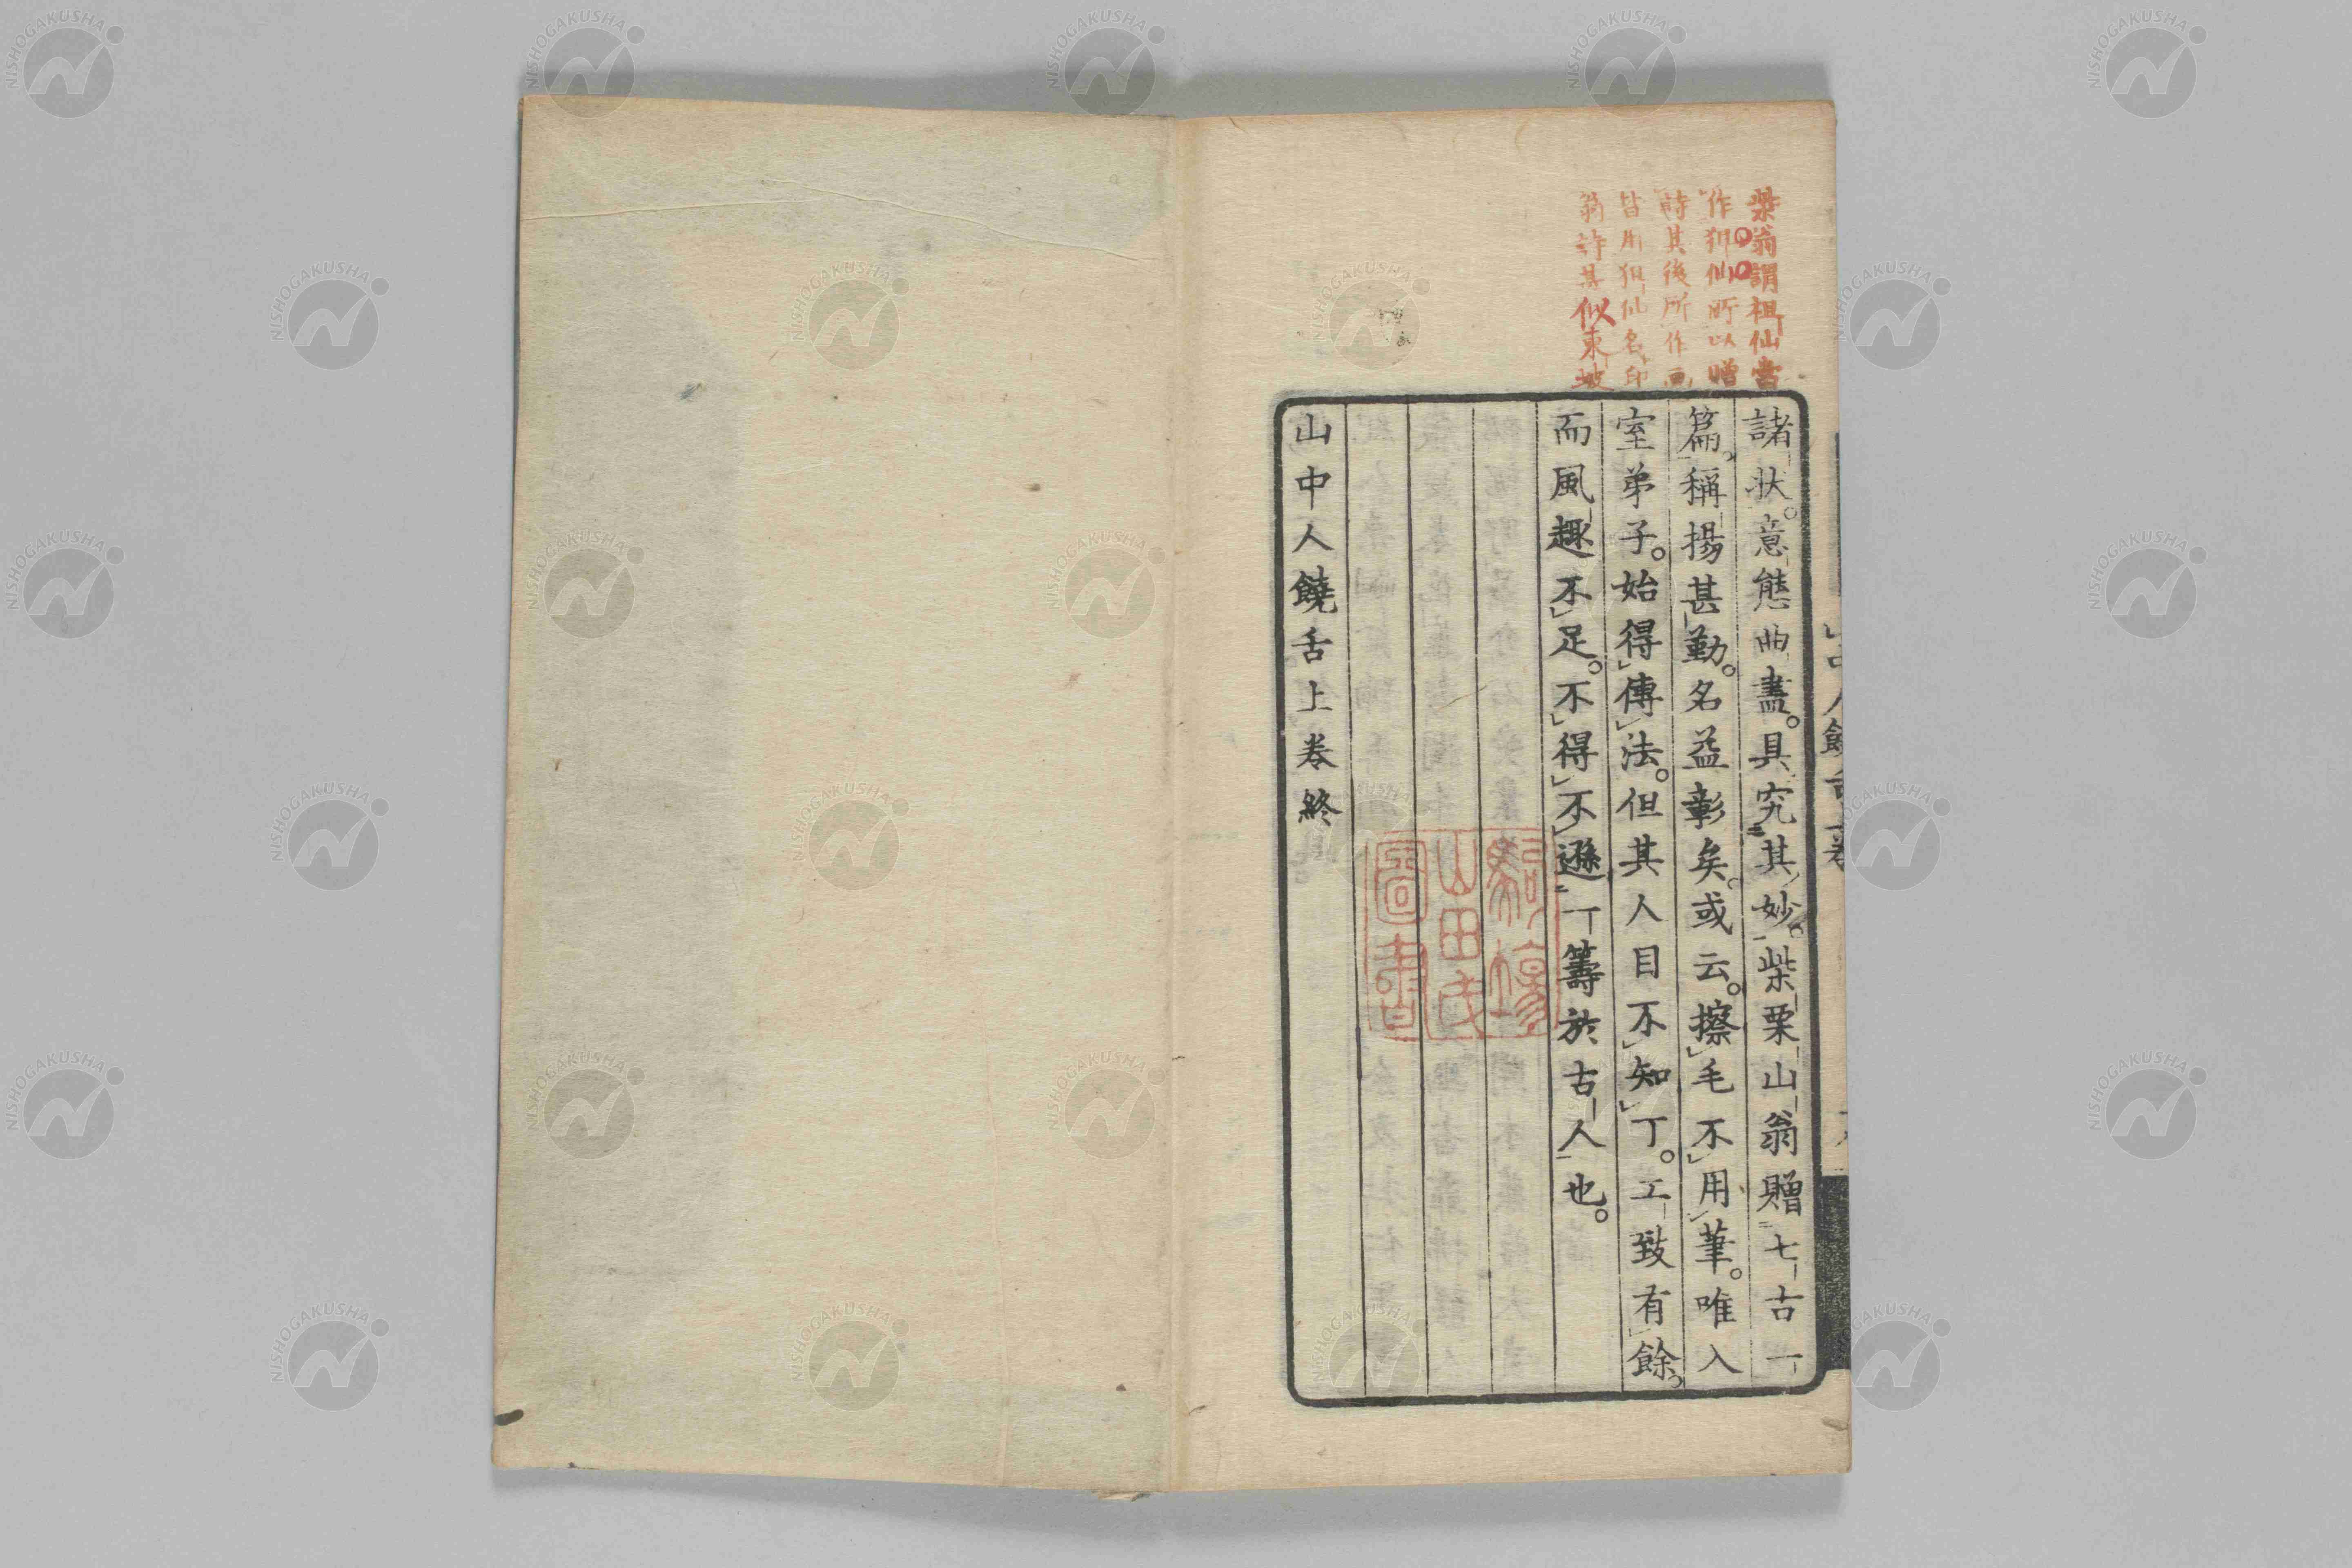 柴翁謂祖仙當
作狙仙所以贈
詩其後所作画
皆用狙仙名印
翁詩甚似東坡
諸状。意態曲盡。具究其妙。柴栗山翁贈七古一
篇。稱揚甚勤。名益彰矣。或云。擦毛不用筆。唯入
室弟子。始得傳法。但其人目不知丁。工致有餘。
而風趣不足。不得不遜一籌於古人也。
山中人饒舌上卷終
山中人饒舌上卷
山田氏
圖書
NISHOGAKUSHA